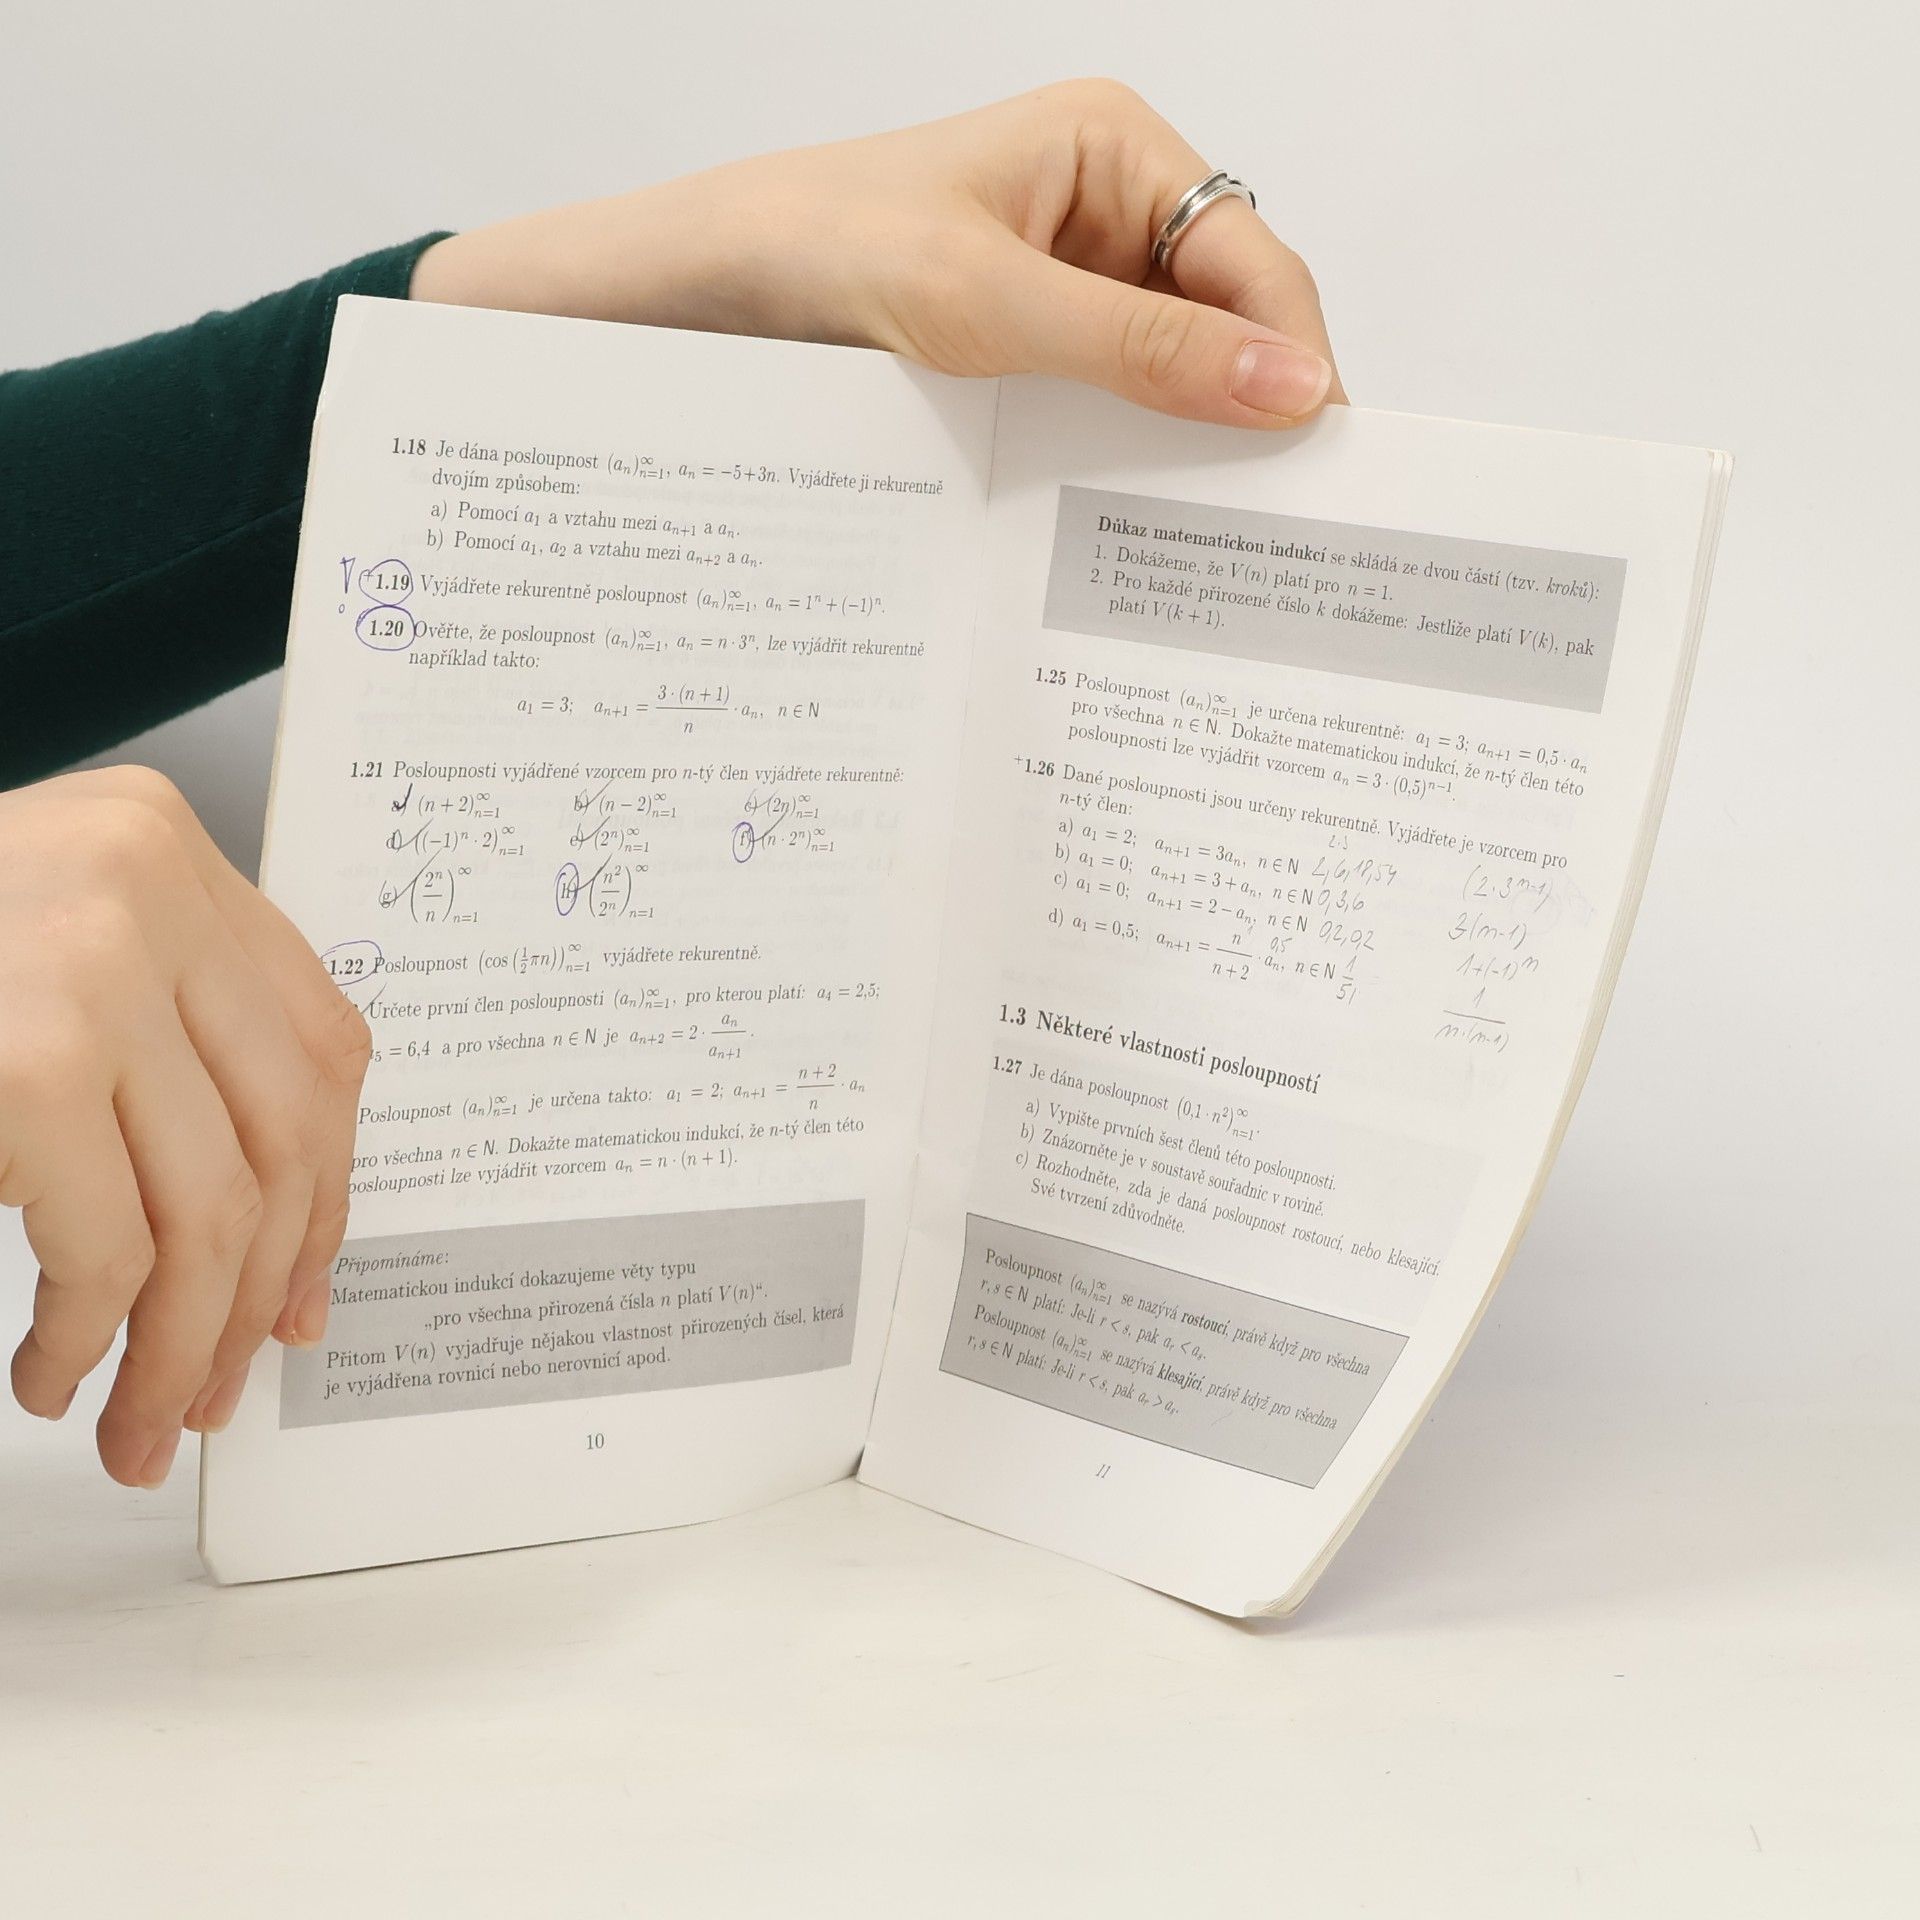 1.18 Je dána posloupnost (aₙ)ₙ₌₁^∞, aₙ = −5+3n. Vyjádřete ji rekurentně
dvojím způsobem:
a) Pomocí a₁ a vztahu mezi aₙ₊₁ a aₙ.
b) Pomocí a₁, a₂ a vztahu mezi aₙ₊₂ a aₙ.
+1.19 Vyjádřete rekurentně posloupnost (aₙ)ₙ₌₁^∞, aₙ = 1ⁿ + (−1)ⁿ.
1.20 Ověřte, že posloupnost (aₙ)ₙ₌₁^∞, aₙ = n · 3ⁿ, lze vyjádřit rekurentně
například takto:
a₁ = 3; aₙ₊₁ = 3 · (n + 1) / n · aₙ, n ∈ N
1.21 Posloupnosti vyjádřené vzorcem pro n-tý člen vyjádřete rekurentně:
a) (n + 2)ₙ₌₁^∞ b) (n − 2)ₙ₌₁^∞ c) (2n)ₙ₌₁^∞
d) ((−1)ⁿ · 2)ₙ₌₁^∞ e) (2ⁿ)ₙ₌₁^∞ f) (n · 2ⁿ)ₙ₌₁^∞
g) (2ⁿ / n)ₙ₌₁^∞ h) (n² / 2ⁿ)ₙ₌₁^∞
1.22 Posloupnost (cos (½πn))ₙ₌₁^∞ vyjádřete rekurentně.
Určete první člen posloupnosti (aₙ)ₙ₌₁^∞, pro kterou platí: a₄ = 2,5;
a₅ = 6,4 a pro všechna n ∈ N je aₙ₊₂ = 2 · aₙ / aₙ₊₁.
Posloupnost (aₙ)ₙ₌₁^∞ je určena takto: a₁ = 2; aₙ₊₁ = (n + 2) / n · aₙ
pro všechna n ∈ N. Dokažte matematickou indukcí, že n-tý člen této
posloupnosti lze vyjádřit vzorcem aₙ = n · (n + 1).
Připomínáme:
Matematickou indukcí dokazujeme věty typu
„pro všechna přirozená čísla n platí V(n)“.
Přitom V(n) vyjadřuje nějakou vlastnost přirozených čísel, která
je vyjádřena rovnicí nebo nerovnicí apod.
10
Důkaz matematickou indukcí se skládá ze dvou částí (tzv. kroků):
1. Dokážeme, že V(n) platí pro n = 1.
2. Pro každé přirozené číslo k dokážeme: Jestliže platí V(k), pak
platí V(k + 1).
1.25 Posloupnost (aₙ)ₙ₌₁^∞ je určena rekurentně: a₁ = 3; aₙ₊₁ = 0,5 · aₙ
pro všechna n ∈ N. Dokažte matematickou indukcí, že n-tý člen této
posloupnosti lze vyjádřit vzorcem aₙ = 3 · (0,5)ⁿ⁻¹.
+1.26 Dané posloupnosti jsou určeny rekurentně. Vyjádřete je vzorcem pro
n-tý člen:
2·3
a) a₁ = 2; aₙ₊₁ = 3aₙ, n ∈ N 2,6,18,54 (2·3ⁿ⁻¹)
b) a₁ = 0; aₙ₊₁ = 3 + aₙ, n ∈ N 0,3,6 3(n-1)
c) a₁ = 0; aₙ₊₁ = 2 − aₙ, n ∈ N 0,2,0,2 1+(-1)ⁿ
d) a₁ = 0,5; aₙ₊₁ = n / (n + 2) · aₙ, n ∈ N 1 / n·(n-1)
1.3 Některé vlastnosti posloupností
1.27 Je dána posloupnost (0,1 · n²)ₙ₌₁^∞.
a) Vypište prvních šest členů této posloupnosti.
b) Znázorněte je v soustavě souřadnic v rovině.
c) Rozhodněte, zda je daná posloupnost rostoucí, nebo klesající.
Své tvrzení zdůvodněte.
Posloupnost (aₙ)ₙ₌₁^∞ se nazývá rostoucí, právě když pro všechna
r, s ∈ N platí: Je-li r < s, pak aᵣ < aₛ.
Posloupnost (aₙ)ₙ₌₁^∞ se nazývá klesající, právě když pro všechna
r, s ∈ N platí: Je-li r < s, pak aᵣ > aₛ.
11